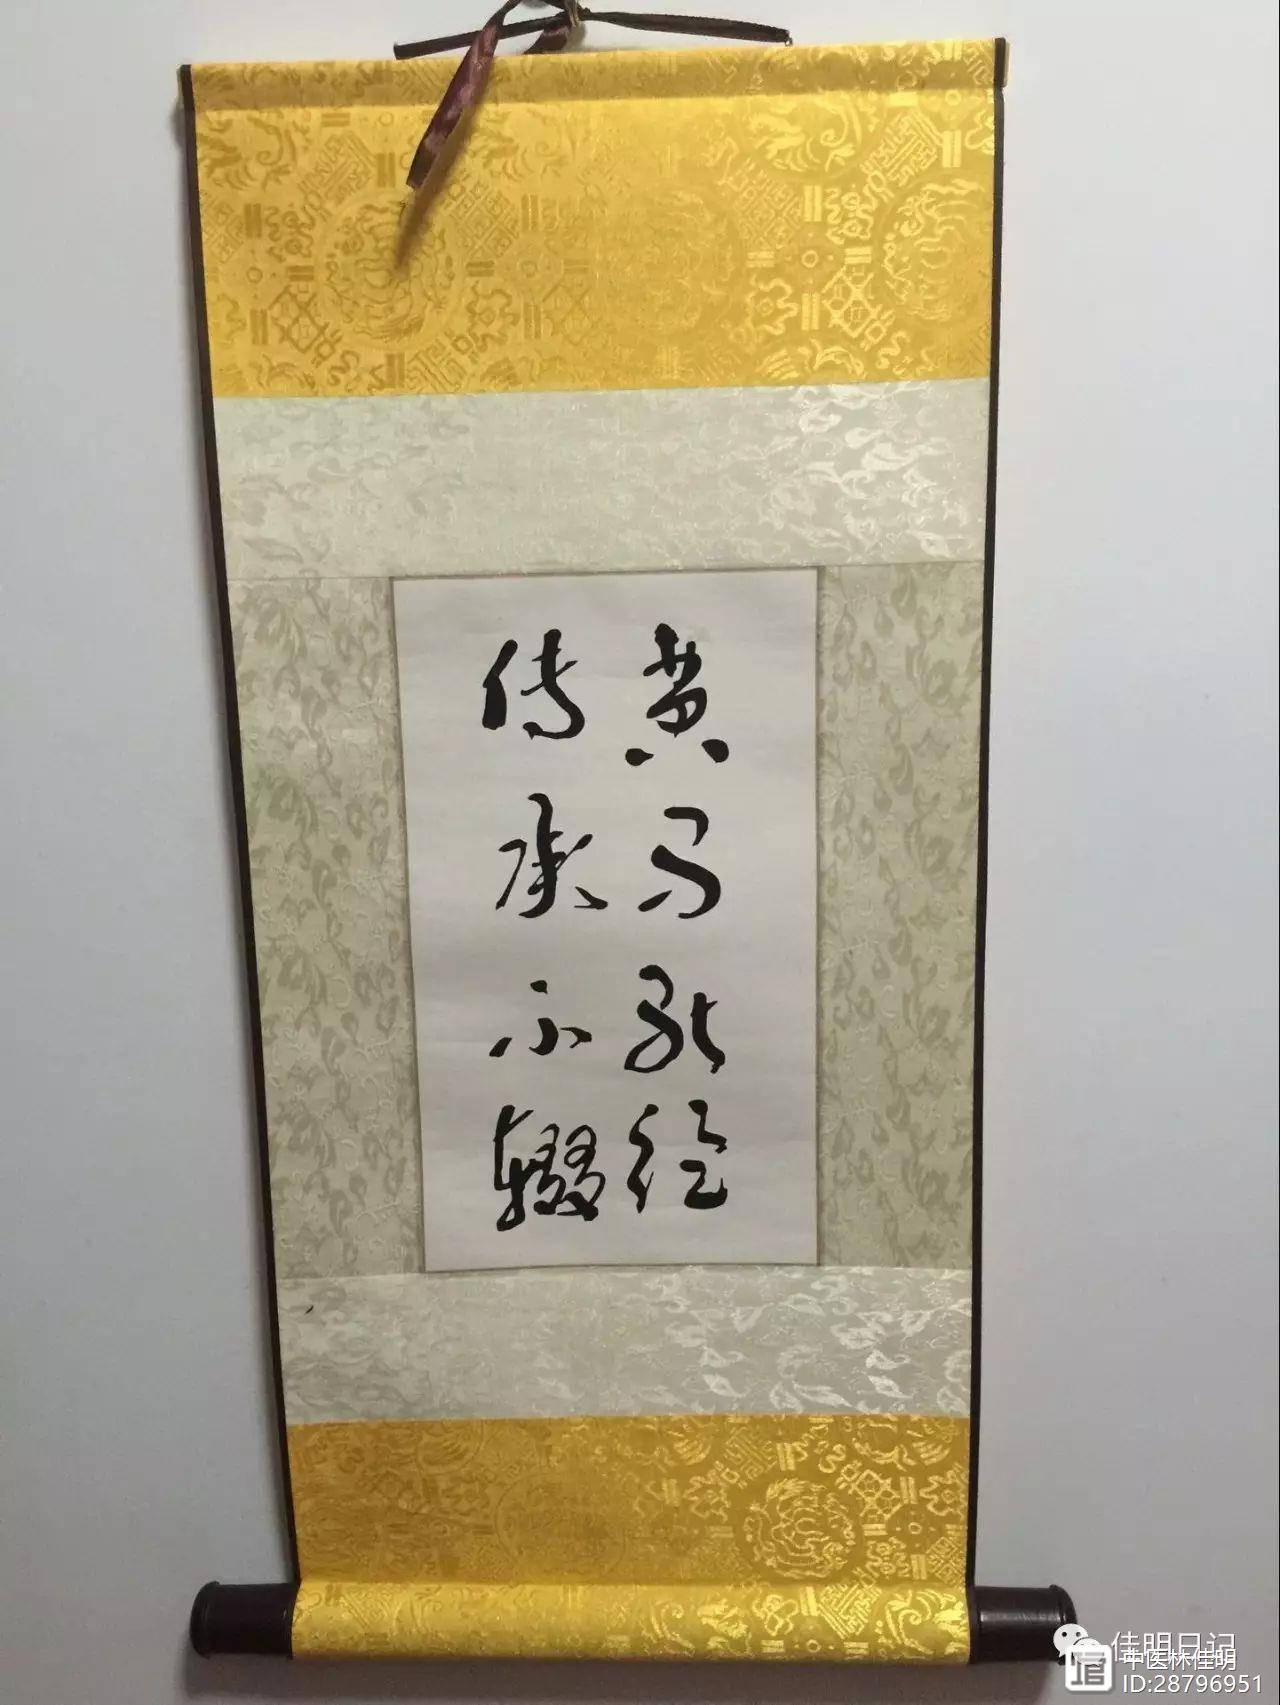 黄
经
传承不辍
佳明日记
中医林佳明
ID:28796951